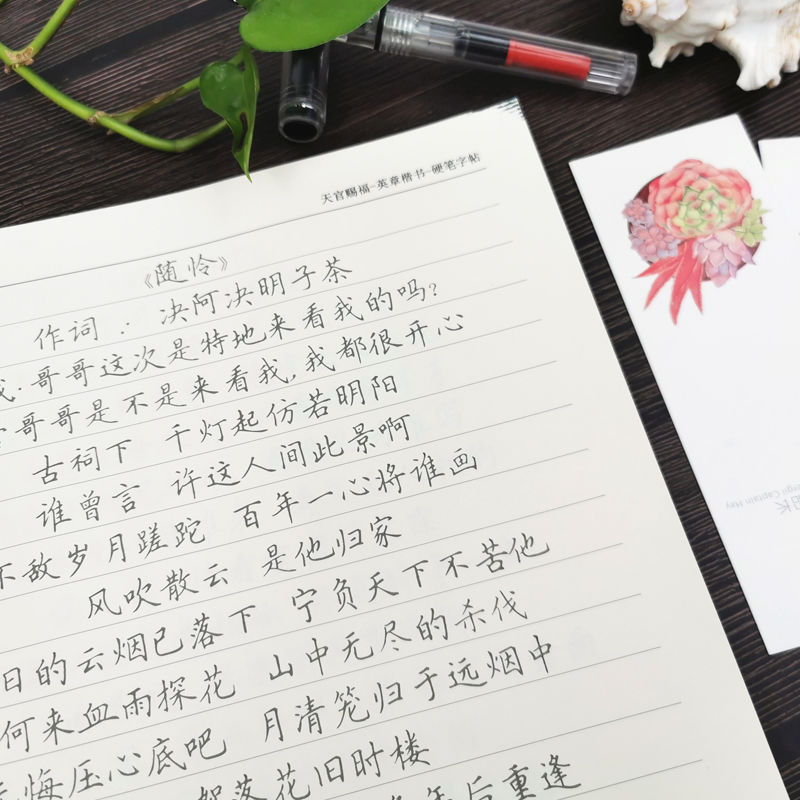 天官赐福-英章楷书-硬笔字帖
《随怜》
作词: 决阿决明子茶
我.哥哥这次是特地来看我的吗?
哥哥是不是来看我,我都很开心
古祠下 千灯起仿若明阳
谁曾言 许这人间此景啊
不敌岁月蹉跎 百年一心将谁画
风吹散云 是他归家
日的云烟已落下 宁负天下不苦他
何来血雨探花 山中无尽的杀伐
悔压心底吧 月清笼归于远烟中
落花旧时楼
年后重逢
Captain Hay